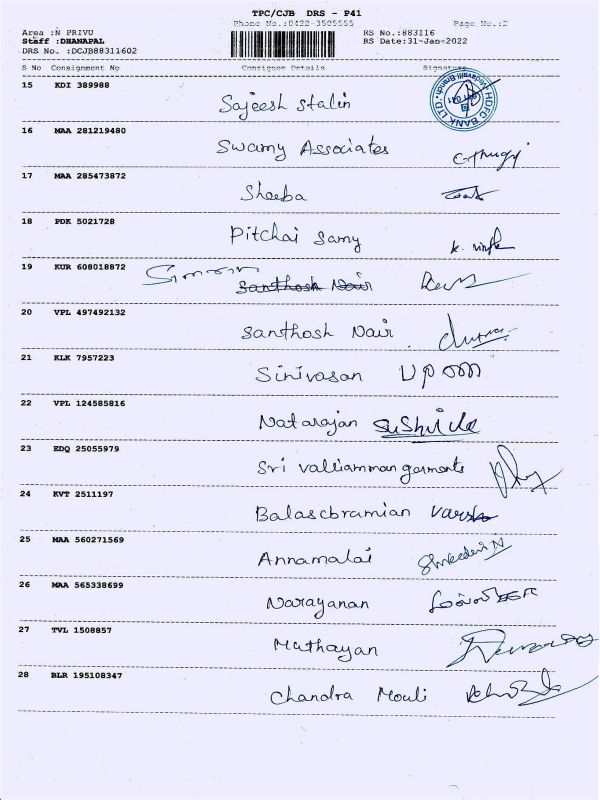 TPC/CJB DRS - P41
Phone No.:0422-3505555 Page No.:2
Area :N PRIVU RS No.:883116
Staff :DHANAPAL RS Date:31-Jan-2022
DRS No. :DCJB88311602
S No Consignment No Consignee Details Signature
15 KDI 389988
Sajeesh Stalin
HDFC BANK LTD.
16 MAA 281219480
Swamy Associates
17 MAA 285473872
Sheeba
18 PDK 5021728
Pitchai Samy
19 KUR 608018872
Santhosh Nair
20 VPL 497492132
Santhosh Nair
21 KLK 7957223
Sinivasan
22 VPL 124585816
Natarajan Sushila
23 EDQ 25055979
Sri valliamman garments
24 KVT 2511197
Balascbramian
25 MAA 560271569
Annamalai Shreedevi N
26 MAA 565338699
Narayanan
27 TVL 1508857
Mathayan
28 BLR 195108347
Chandra Mouli